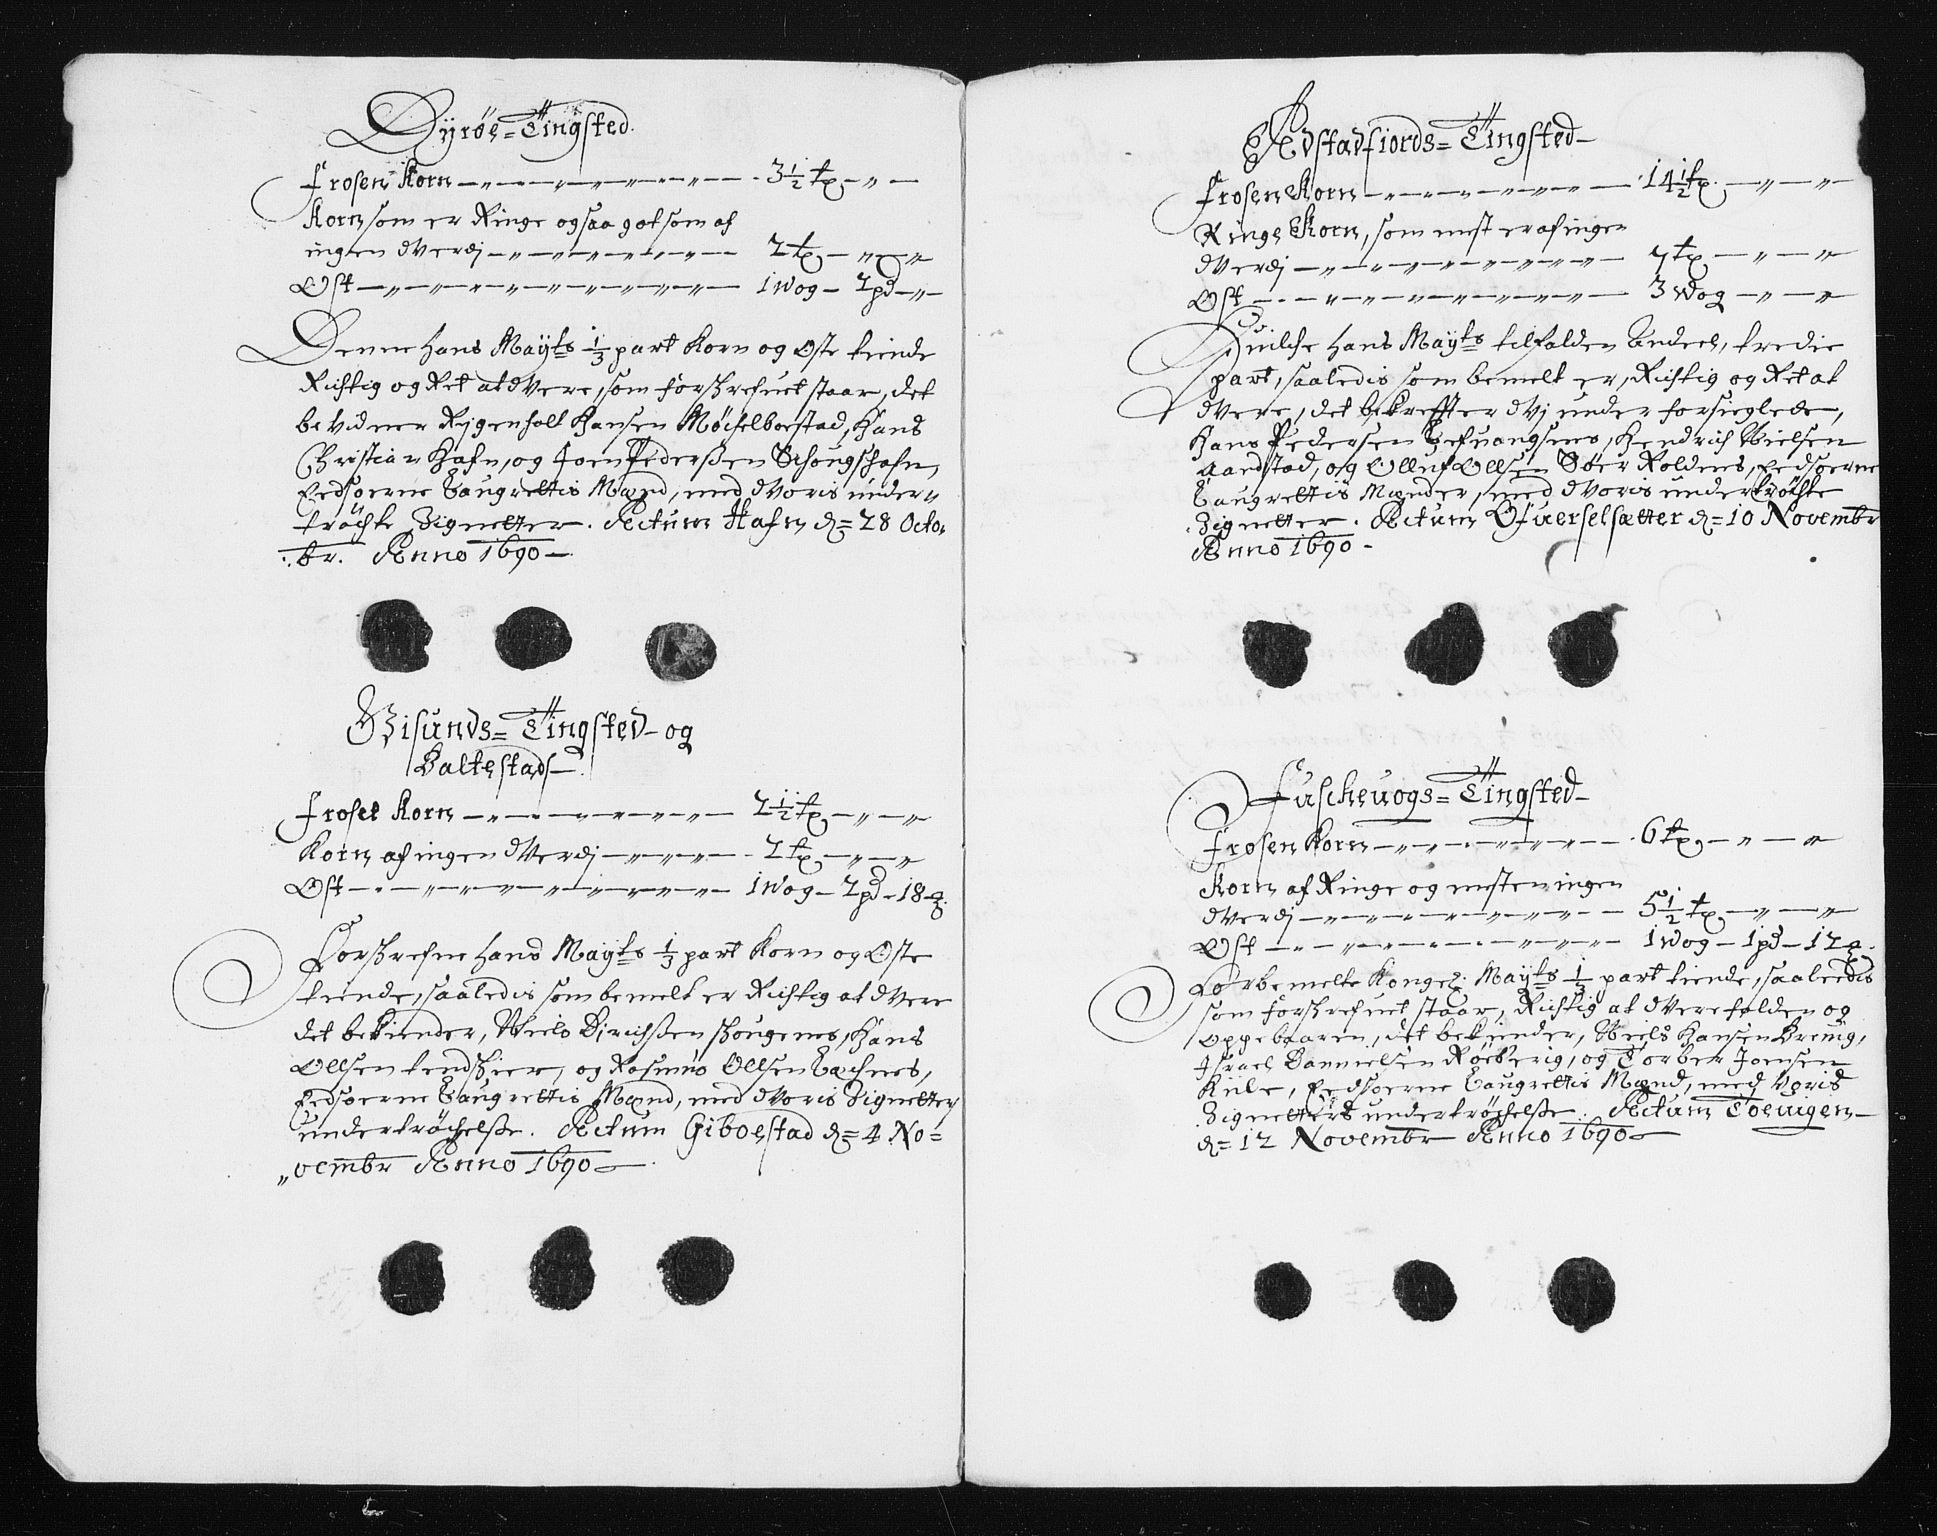 Dÿrøe=Tingsted.
frosen Korn — 3½ tr — " —
Korn som er Ringe ogsaa got som af
ingen dVerdj — 2 tr — " — "
Ost — 1 Wog — 2 pd — " —
Denne hans Maÿts 1/3 part Korn og Oste tiende
Richtig og Ret at dvere, som forskrefuet staar, det
bevidner Rejgenholt Hansen Møchelboestad, Hans
Christian Hafn, og Joen Pederßen Schougshafn,
Eedsoerne Laugrettis Mænd, med dVoris under-
tröchte Zignetter. Actum Hafn d= 28 Octo-
br. Anno 1690 —
Gisunds=Tingsted og
Baltestads —
froset Korn — 2½ tr — " — "
Korn af ingen dVerdj — 2 tr — " — "
Ost — 1 Wog — 2 pd — 18
Forskrefne hans Mayts 1/3 part Korn og Oste
tiende, saaledis som bemelt er Richtig at dvere
det bekiender, Niels Dirichßen Skougnes, Hans
Ollsen Lendskier, og Rasmus Ollsen Lachnes,
Eedsoerne Laugrettis Mænd, med dVoris Zignetter
undertröchelße. Actum Giboestad d= 4 No=
"vembr Anno 1690 —
Adstadfiords=Tingsted—
frosen Korn — 14½ tr — " — "
Ringe Korn, som mest er af ingen
dverdj — 7 tr — " — "
Ost — 3 Wog — " — "
Huilche hans Mayts tilfalden Andeel, tredie
part, saaledis som bemelt er, Richtig og Ret at
dvere, det bekreffter dVj under forsieglede,
Hans Pedersen, Hendrich Nielsen
Aandstad, og Olluf Ollsen Søer Roldnes, Eedsoerne
Laugrettis Mænder, med dVoris undertröchte
Zignetter. Actum Ofuerselsætter d= 10 Novembr
Anno 1690 -
Fuscheuogs=Tingsted—
frosen Korn — 6 tr — " — "
Korn af Ringe og mesten ingen
dverdj — 5½ tr — " — "
Ost — 1 Wog — 1 pd — 12
Forbemelte Kongel: Mayts 1/3 part tiende, saaledis
som forskrefuet staar, Richtig at dvere falden og
oppebaaren, det bekiender, Niels Hansen Breuig,
Israel Dannielsen Røeberig, og Torber Joensen
Kiile, Eedsoerne Laugrettis Mænd, med Voris
Zignetters undertröchelße. Actum Toeuigen—
d= 12 Novembr Anno 1690 —